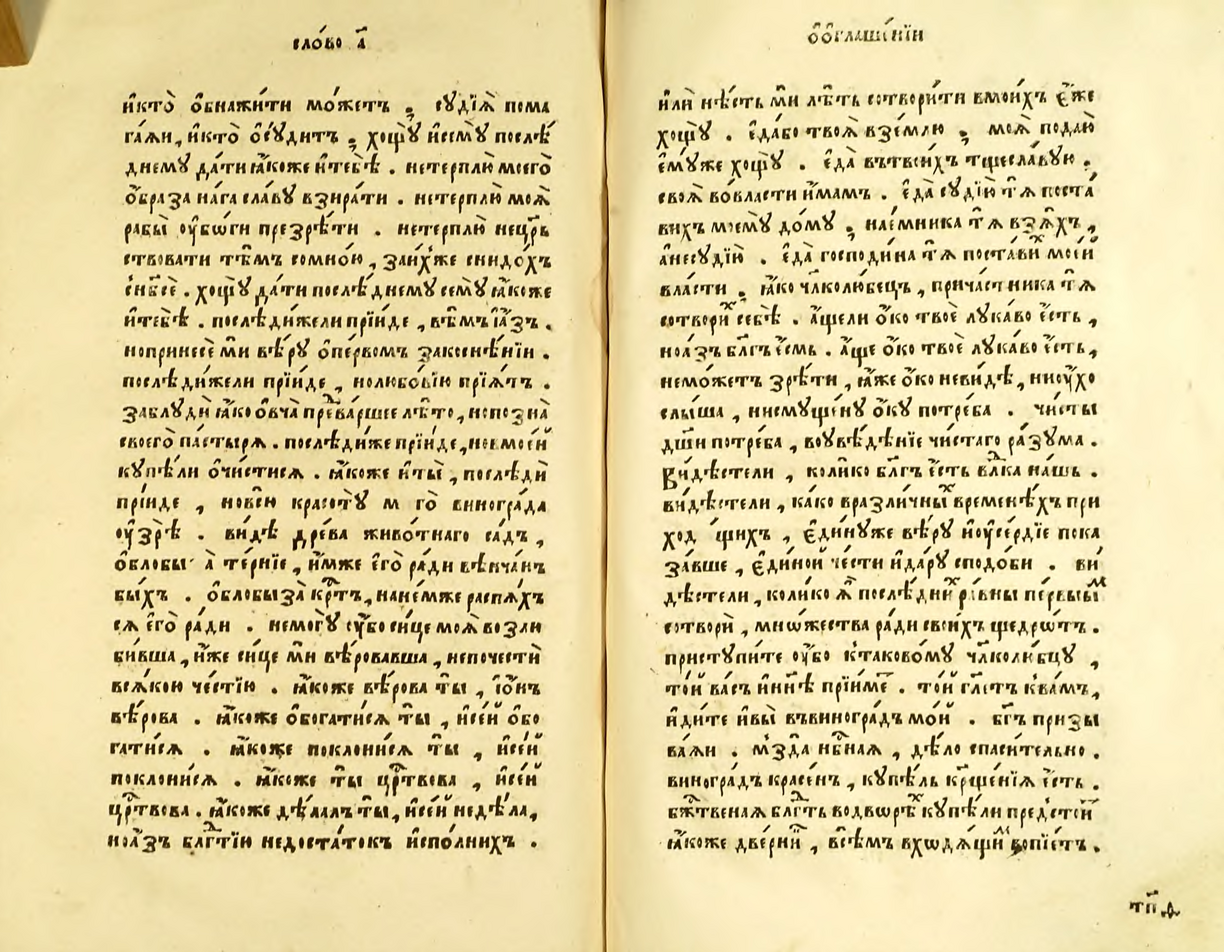 сло́во а҃
и҆кто̀ ѡ҆бнажи́ти мо́жетъ , сꙋдїѧ̀ пома
га́ѧи , и҆кто̀ ѡ҆сꙋ́дитъ , хощꙋ̀ и҆семꙋ̀ послѣ́
днемꙋ да́ти ꙗ҆́коже и҆тебѣ̀ . нетерплю̀ моего̀
ѻ҆́браза на́га сла́вꙋ взира́ти . нетерплю̀ моѧ̀
рабы̀ ᲂу҆бѡ́ги презрѣ́ти . нетерплю̀ нецр҃ь
ствовати тѣ́мъ сомно́ю , зани́хже снидо́хъ
снб҃сѐ . хощꙋ̀ да́ти послѣ́днемꙋ семꙋ̀ ꙗ҆́коже
и҆тебѣ̀ . послѣди́жели прїи́де , вѣ́мъ і҆а҆́зъ .
нопринесѐ мѝ вѣ́рꙋ ѻ҆пе́рвомъ закоснѣ́нїи .
послѣди́жели прїи́де , нолюбо́вїю прїѧ́тъ .
заблꙋдѝ ꙗ҆́ко ѻ҆вча̀ преⷤва́ршее лѣ́то , нопозна̀
своего̀ па́стырѧ . послѣди́же прїи́де , новмое́й
кꙋпѣ́ли ѡ҆чи́стисѧ . ꙗ҆́коже и҆ты̀ , послѣдѝ
прїи́де , новсю̀ красотꙋ̀ м го̀ виногра́да
ᲂу҆зрѣ̀ . ви́дѣ дре́ва живо́тнаго са́дъ ,
ѡ҆блобы а̀ те́рнїе , и҆́мже є҆гѡ̀ ра́ди вѣнча́нъ
бы́хъ . ѡ҆блобыза̀ крⷭ҇тъ , нане́мже распѧ́хъ
сѧ є҆гѡ̀ ра́ди . немогꙋ̀ ᲂу҆̀бо си́це моѧ̀ возлю
би́вша , и҆́же си́це мѝ вѣ́ровавша , непоче́сти
всѧ́кою че́стїю . ꙗ҆́коже вѣ́рова ты̀ , і҆ѻ́нъ
вѣ́рова . ꙗ҆́коже ѡ҆богати́сѧ ты̀ , и҆се́й ѡ҆бо
гати́сѧ . ꙗ҆́коже поклони́сѧ ты̀ , и҆се́й
поклони́сѧ . ꙗ҆́коже ты̀ црⷭ҇твова , и҆се́й
црⷭ҇твова . ꙗ҆́коже дѣ́лалъ ты̀ , и҆се́й недѣ́ла ,
ноа҆́зъ блгⷣтїю недоста́токъ и҆спо́лнихъ .
ѽѡ҆глаше́нїи
и҆лѝ нѣ́сть мѝ лѣ́ть сотвори́ти вмои́хъ є҆́же
хощꙋ̀ . є҆да́бо твоѧ̀ взе́млю , моѧ̀ подаю̀
є҆мꙋ́же хощꙋ̀ . є҆да̀ вътвои́хъ тщесла́вꙋю ,
своѧ̀ во́власти и҆́мамъ . є҆да̀ сꙋдїю̀ тѧ̀ поста́
вихъ моемꙋ̀ до́мꙋ , нае́мника тѧ̀ взѧ́хъ ,
а҆несꙋдїю̀ . є҆да̀ господи́на тѧ̀ поста́виⷯ мое́й
вла́сти , ꙗ҆́ко чл҃колю́бецъ , прича́стника тѧ̀
сотвори́ⷯ себѣ̀ . а҆́щели ѻ҆́ко твоѐ лꙋка́во є҆́сть ,
ноа҆́зъ бл҃гъ є҆́смь . а҆́ще ѻ҆́ко твоѐ лꙋка́во є҆́сть ,
немо́жетъ зрѣ́ти , ꙗ҆́же ѻ҆́ко неви́дѣ , ниᲂу҆́хо
слы́ша , нисмꙋще́нꙋ ѻ҆́кꙋ потре́ба . чи́сты
дш҃и потре́ба , воᲂу҆вѣ́дѣнїе чи́стаго ра́зꙋма .
Ви́дѣстели , коли́ко бл҃гъ є҆́сть влⷣка на́шь .
ви́дѣстели , ка́ко вразли́чныⷯ временѣ́хъ при
ход щихъ , є҆ди́нꙋже вѣ́рꙋ и҆ᲂу҆се́рдїе пока
за́вше , є҆ди́ной че́сти и҆да́рꙋ сподо́би . ви́
дѣстели , коли́ко ѧ҆̀ послѣ́дниⷯ ра́вны пе́рвыиⷨ
сотворѝ , мно́жества ра́ди свои́хъ щедро́тъ .
пристꙋпи́те ᲂу҆̀бо ктаково́мꙋ чл҃колю́бцꙋ ,
то́й ва́съ и҆нн҃ѣ прїи́меⷮ . то́й гл҃етъ ква́мъ ,
и҆ди́те и҆вы̀ въвиногра́дъ мо́й . бг҃ъ призы
ва́ѧи . мзда̀ нбⷭ҇наѧ , дѣ́ло спаси́тельно .
виногра́дъ красе́нъ , кꙋпѣ́ль кр҃ще́нїѧ є҆́сть .
бжⷭ҇твенаѧ блгⷣть водво́рѣⷯ кꙋпѣ́ли предстои́тъ
ꙗ҆́коже две́рнй , всѣ́мъ вхѡдѧ́щиⷨ вопїе́тъ .